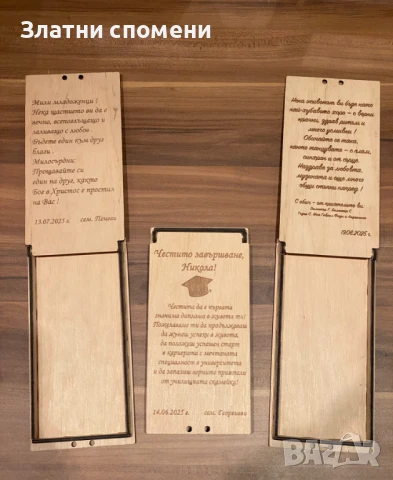 Златни спомени
Мили младоженци!
Нека щастието ви да е
вечно, всепоглъщащо и
заливащо с любов
Бъдете един към друг
благи.
Милосърдни:
Прощавайте си
един на друг, както
Бог в Христос е простил
на Вас!
13.07.2025 г. сем. Пеневи
Честито завършване,
Никола!
Честита да е първата
значима диплома в живота ти!
Пожелаваме ти да продължаваш
да жънеш успехи в живота,
да положиш успешен старт
в кариерата с мечтаната
специалност в университета
и да запазиш верните приятели
от училищната скамейка!
14.06.2025 г. сем. Георгиеви
Нека животът ви бъде като
най-хубавото хоро – с верни
крачки, здрав ритъм и
много усмивки!
Обичайте се така,
както танцувате – с плам,
синхрон и от сърце.
Наздраве за любовта,
музиката и още много
общи стъпки напред!
С обич – от приятелите ви
19.08.2025 г.
BAZAR